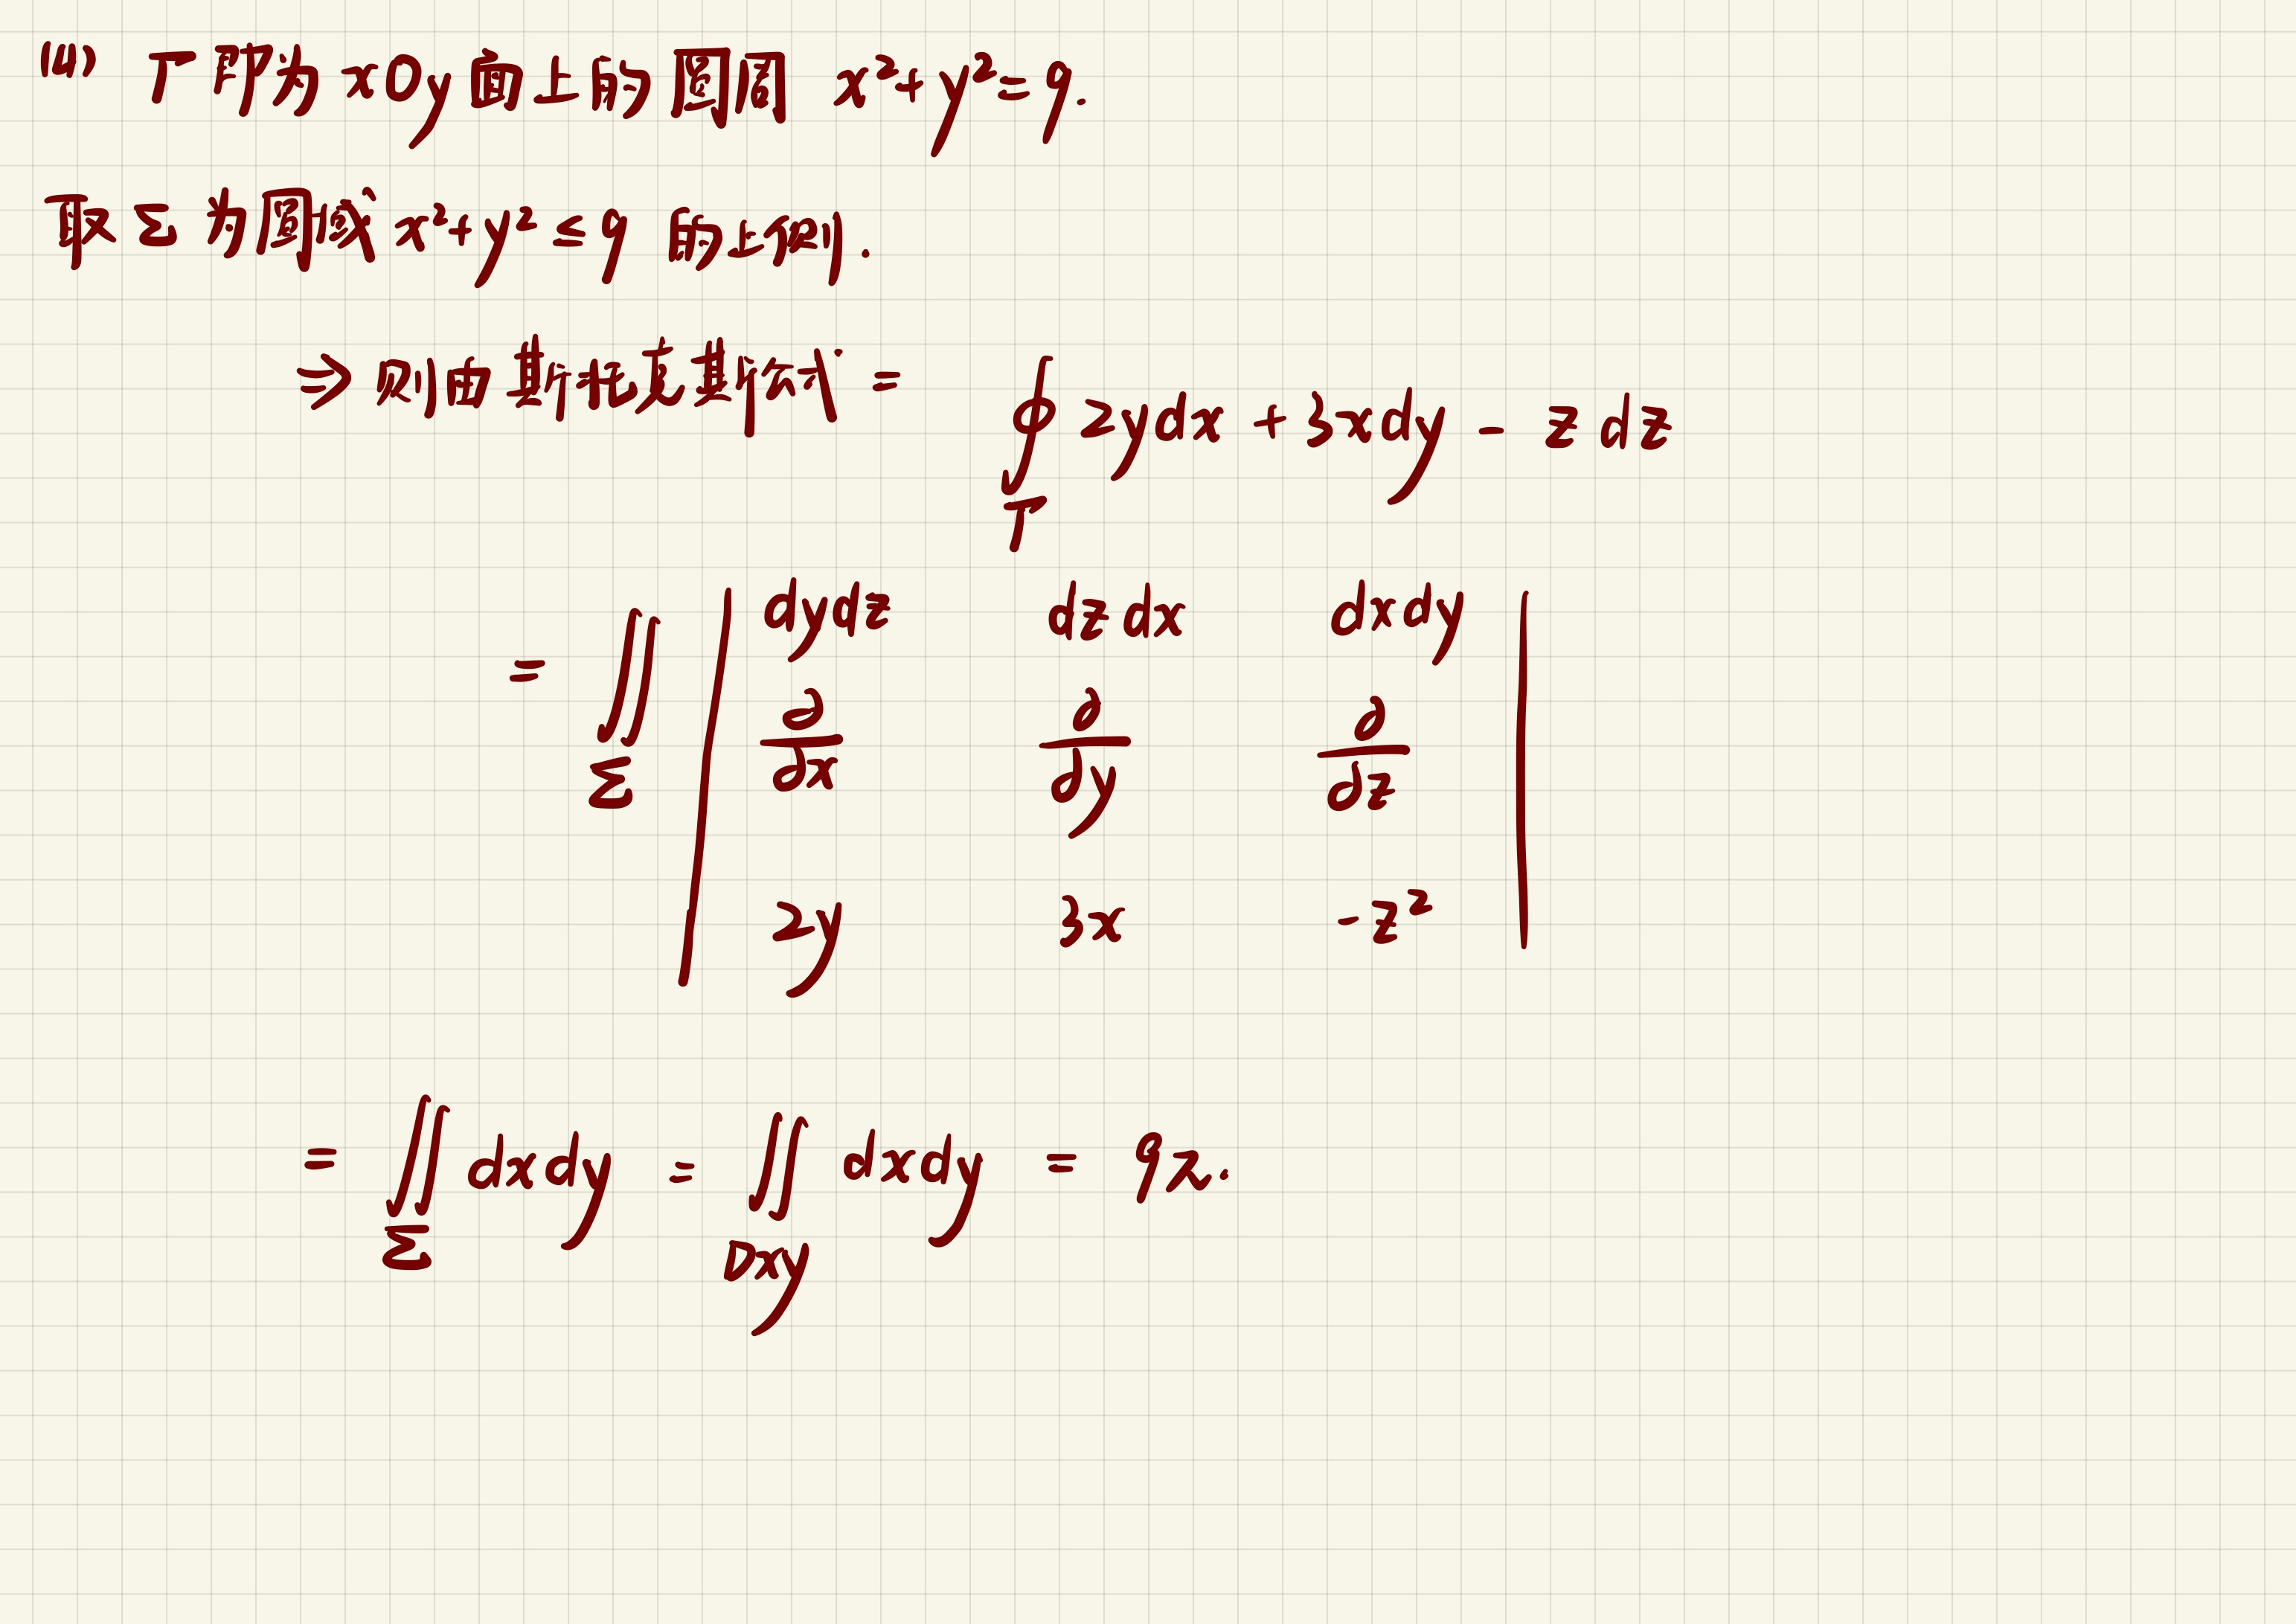 (4) Γ即为xOy面上的圆周 x²+y²=9.
取Σ为圆域x²+y²≤9 的上侧.
⇒ 则由斯托克斯公式 = ∮_Γ 2ydx + 3xdy - z dz
= ∬_Σ | dydz dzdx dxdy |
∂/∂x ∂/∂y ∂/∂z
2y 3x -z²
= ∬_Σ dxdy = ∬_Dxy dxdy = 9π.